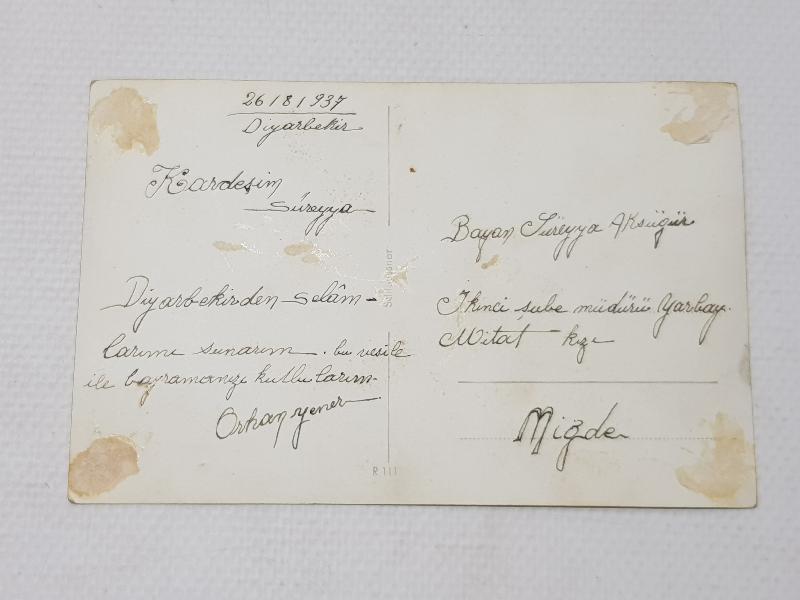 26/8/937
Diyarbekir
Kardeşim
Süreyya
Diyarbekirden selâm-
larımı sunarım. bu vesile
ile bayramınızı kutlularım.
Orhan Yener
R 111
Bayan Süreyya Aksügür
İkinci şube müdürü Yarbay.
Mitat kızı
Niğde